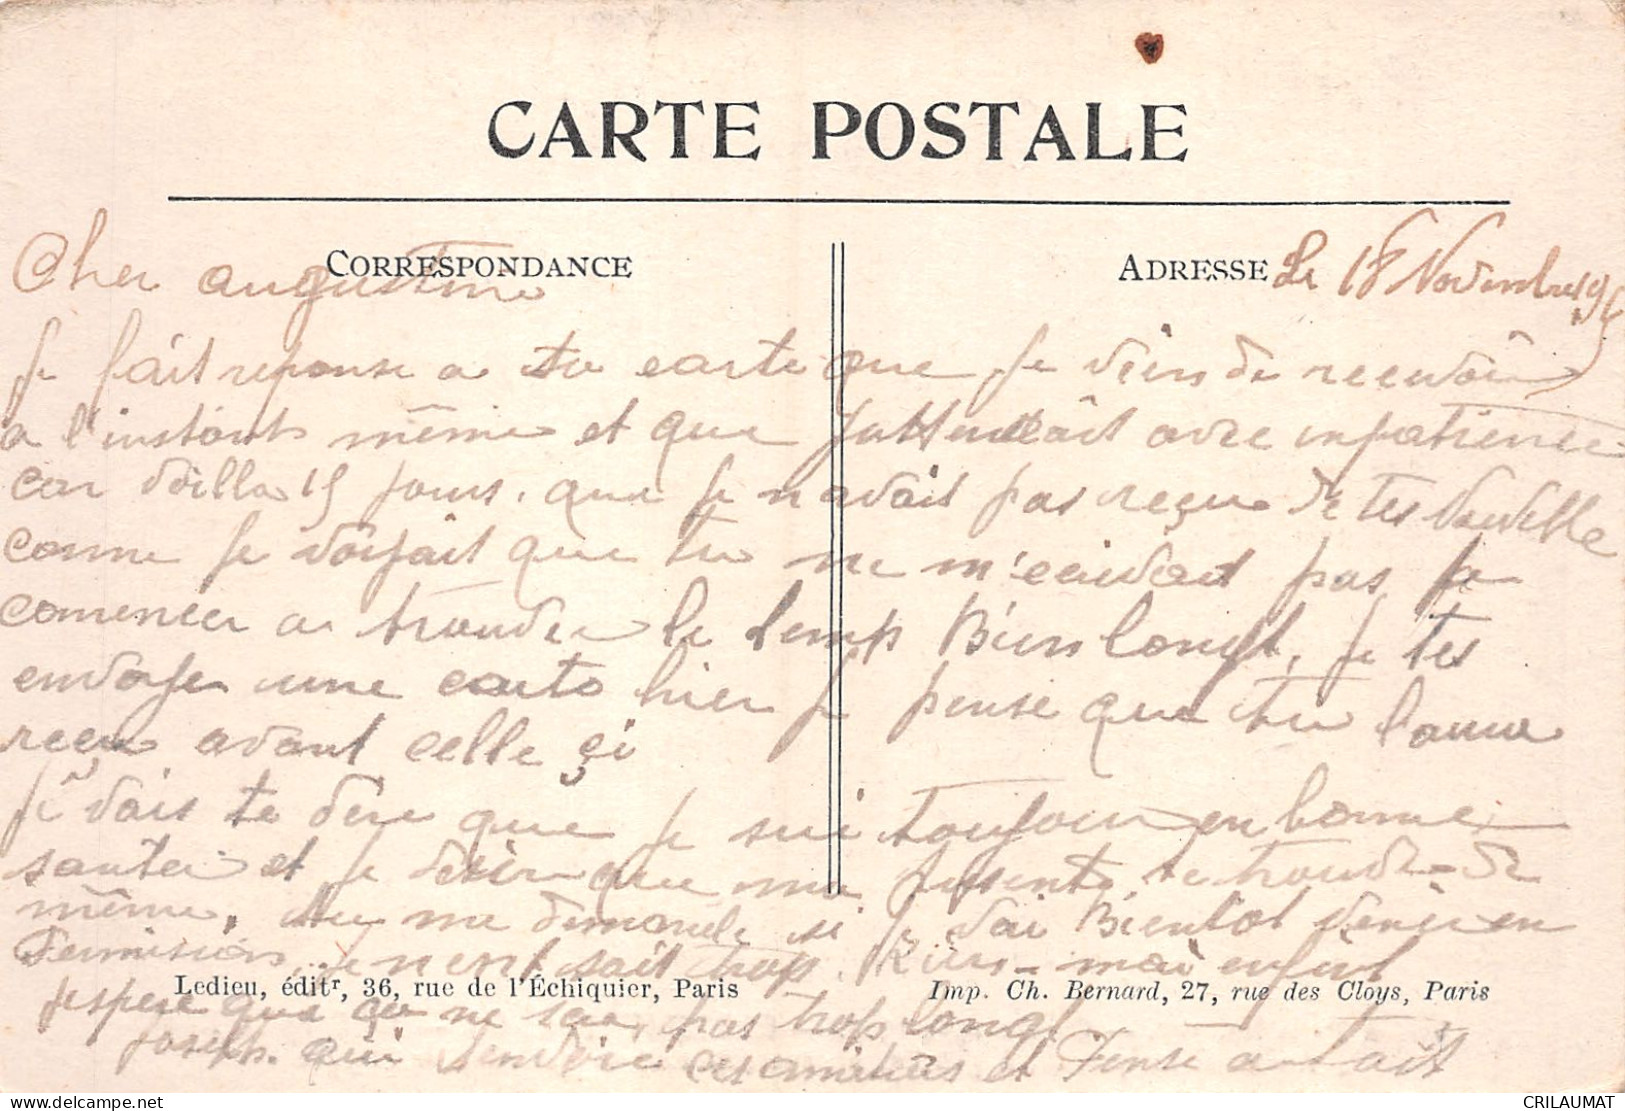 CARTE POSTALE
CORRESPONDANCE
ADRESSE
Le 18 Novembre 191
Cher augustine
Je fait reponse a ta carte que je viens de recevoir
a l'instant même et que jattendait avec inpatience
car voilla 15 jours. que je n'avait pas reçu de tes nouvelle
comme je voyait que tu ne m'ecrivait pas je
comencer a trouver le temp Bien longt, je tes
envoyer une carte hier je pense que tu laura
reçu avant celle çi
Je vais te dire que je sui toujour en bonne
santer et je desire que ma presente te trouve de
même, tu me demande si je vai Bientot venir en
Permision, je n'en sait trop Rien mai enfint
jespere que ça ne sera pas trop long
joseph. qui t'envoie ces amitiers et Pense a toit
Ledieu, éditr, 36, rue de l'Échiquier, Paris
Imp. Ch. Bernard, 27, rue des Cloys, Paris
delcampe.net
CRILAUMAT